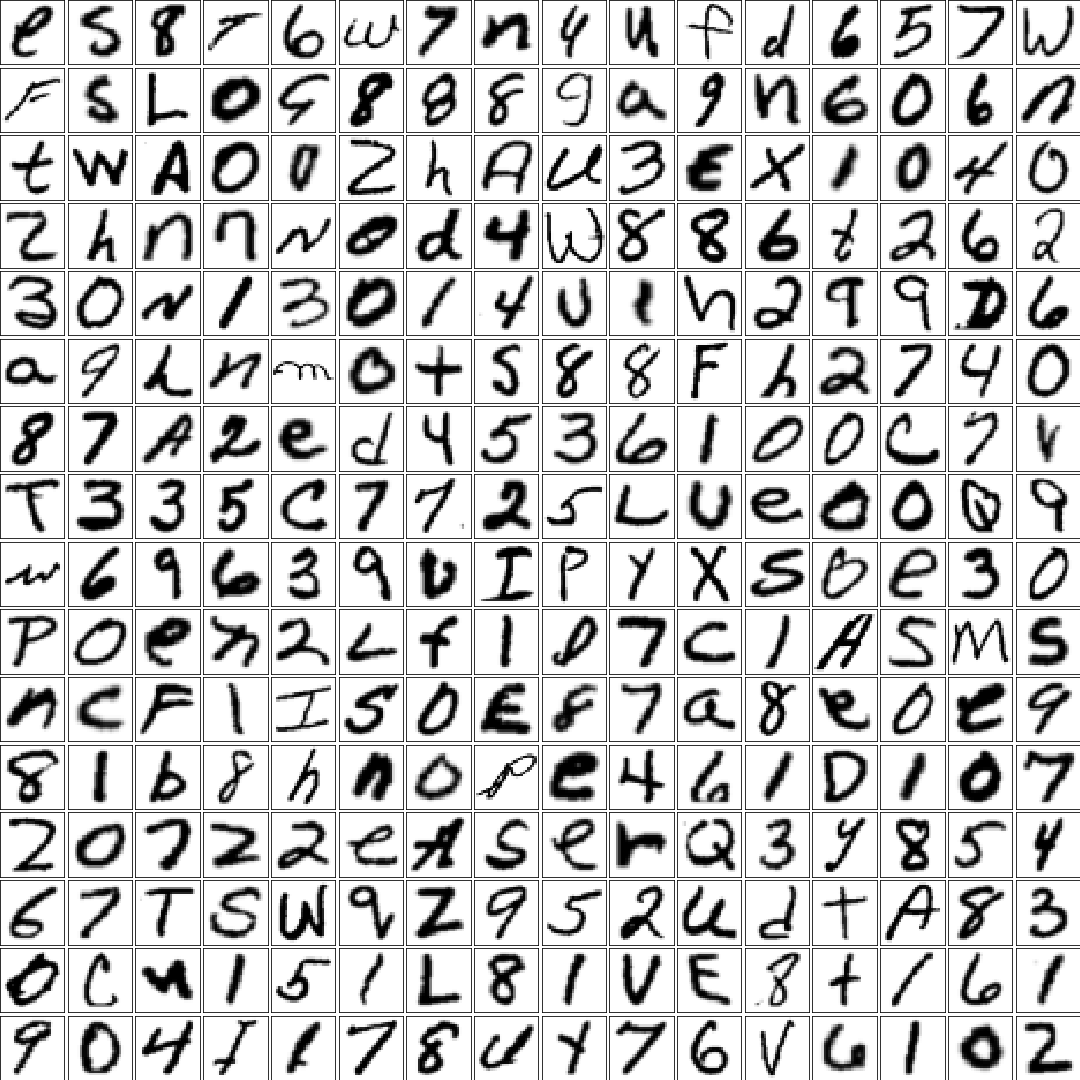 e S 8 r 6 w 7 n 4 u f d 6 5 7 W
F S L 0 5 8 8 8 g a 9 n 6 0 6 n
t W A 0 0 Z h A U 3 E X 1 0 4 0
Z h n n N 0 d 4 W 8 8 6 t 2 6 2
3 0 N 1 3 0 1 4 U 1 h 2 9 9 D 6
a 9 h n m 0 t S 8 8 F h 2 7 4 0
8 7 A 2 e d 4 5 3 6 1 0 0 C 7 V
T 3 3 5 C 7 7 2 5 L U e 0 0 Q 9
N 6 9 6 3 9 U I P Y X S 0 e 3 0
P 0 e n 2 L f 1 D 7 C 1 A S M S
n C F 1 I S 0 E 8 7 a 8 e 0 e 9
8 1 b 8 h n 0 P e 4 6 1 D 1 0 7
2 0 7 2 2 e A S e r Q 3 y 8 5 4
6 7 T S W q Z 9 5 2 U d t A 8 3
0 C n 1 5 1 L 8 1 V E 8 t 1 6 1
9 0 4 I 1 7 8 U Y 7 6 V 6 1 0 2